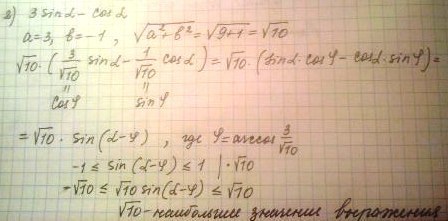 в) 3 sin α - cos α
a=3, b=-1, √(a²+b²)=√(9+1)=√10
√10·(3/√10 sin α - 1/√10 cos α)=√10·(sin α·cos φ - cos α·sin φ)=
" "
cos φ sin φ
=√10·sin(α-φ), где φ=arccos 3/√10
-1 ≤ sin(α-φ) ≤ 1 |·√10
-√10 ≤ √10 sin(α-φ) ≤ √10
√10-наибольшее значение выражения